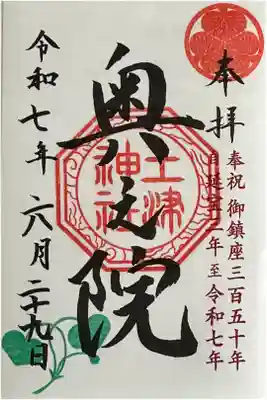 奉拝
奉祝 御鎮座三百五十年
自延宝三年 至令和七年
奥之院
土津
神社
令和七年 六月二十九日